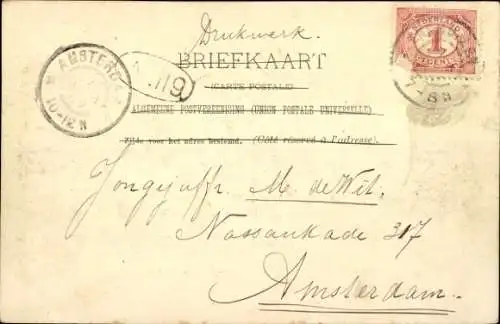 Drukwerk
BRIEFKAART
(CARTE POSTALE)
ALGEMEENE POSTVEREENIGING (UNION POSTALE UNIVERSELLE)
Zijde voor het adres bestemd. (Côté réservé à l'adresse).
AMSTERD
10-12 N
119
NEDERLAND
1
CENT
Jongejuffr. M. de Wit.
Nassaukade 317
Amsterdam.